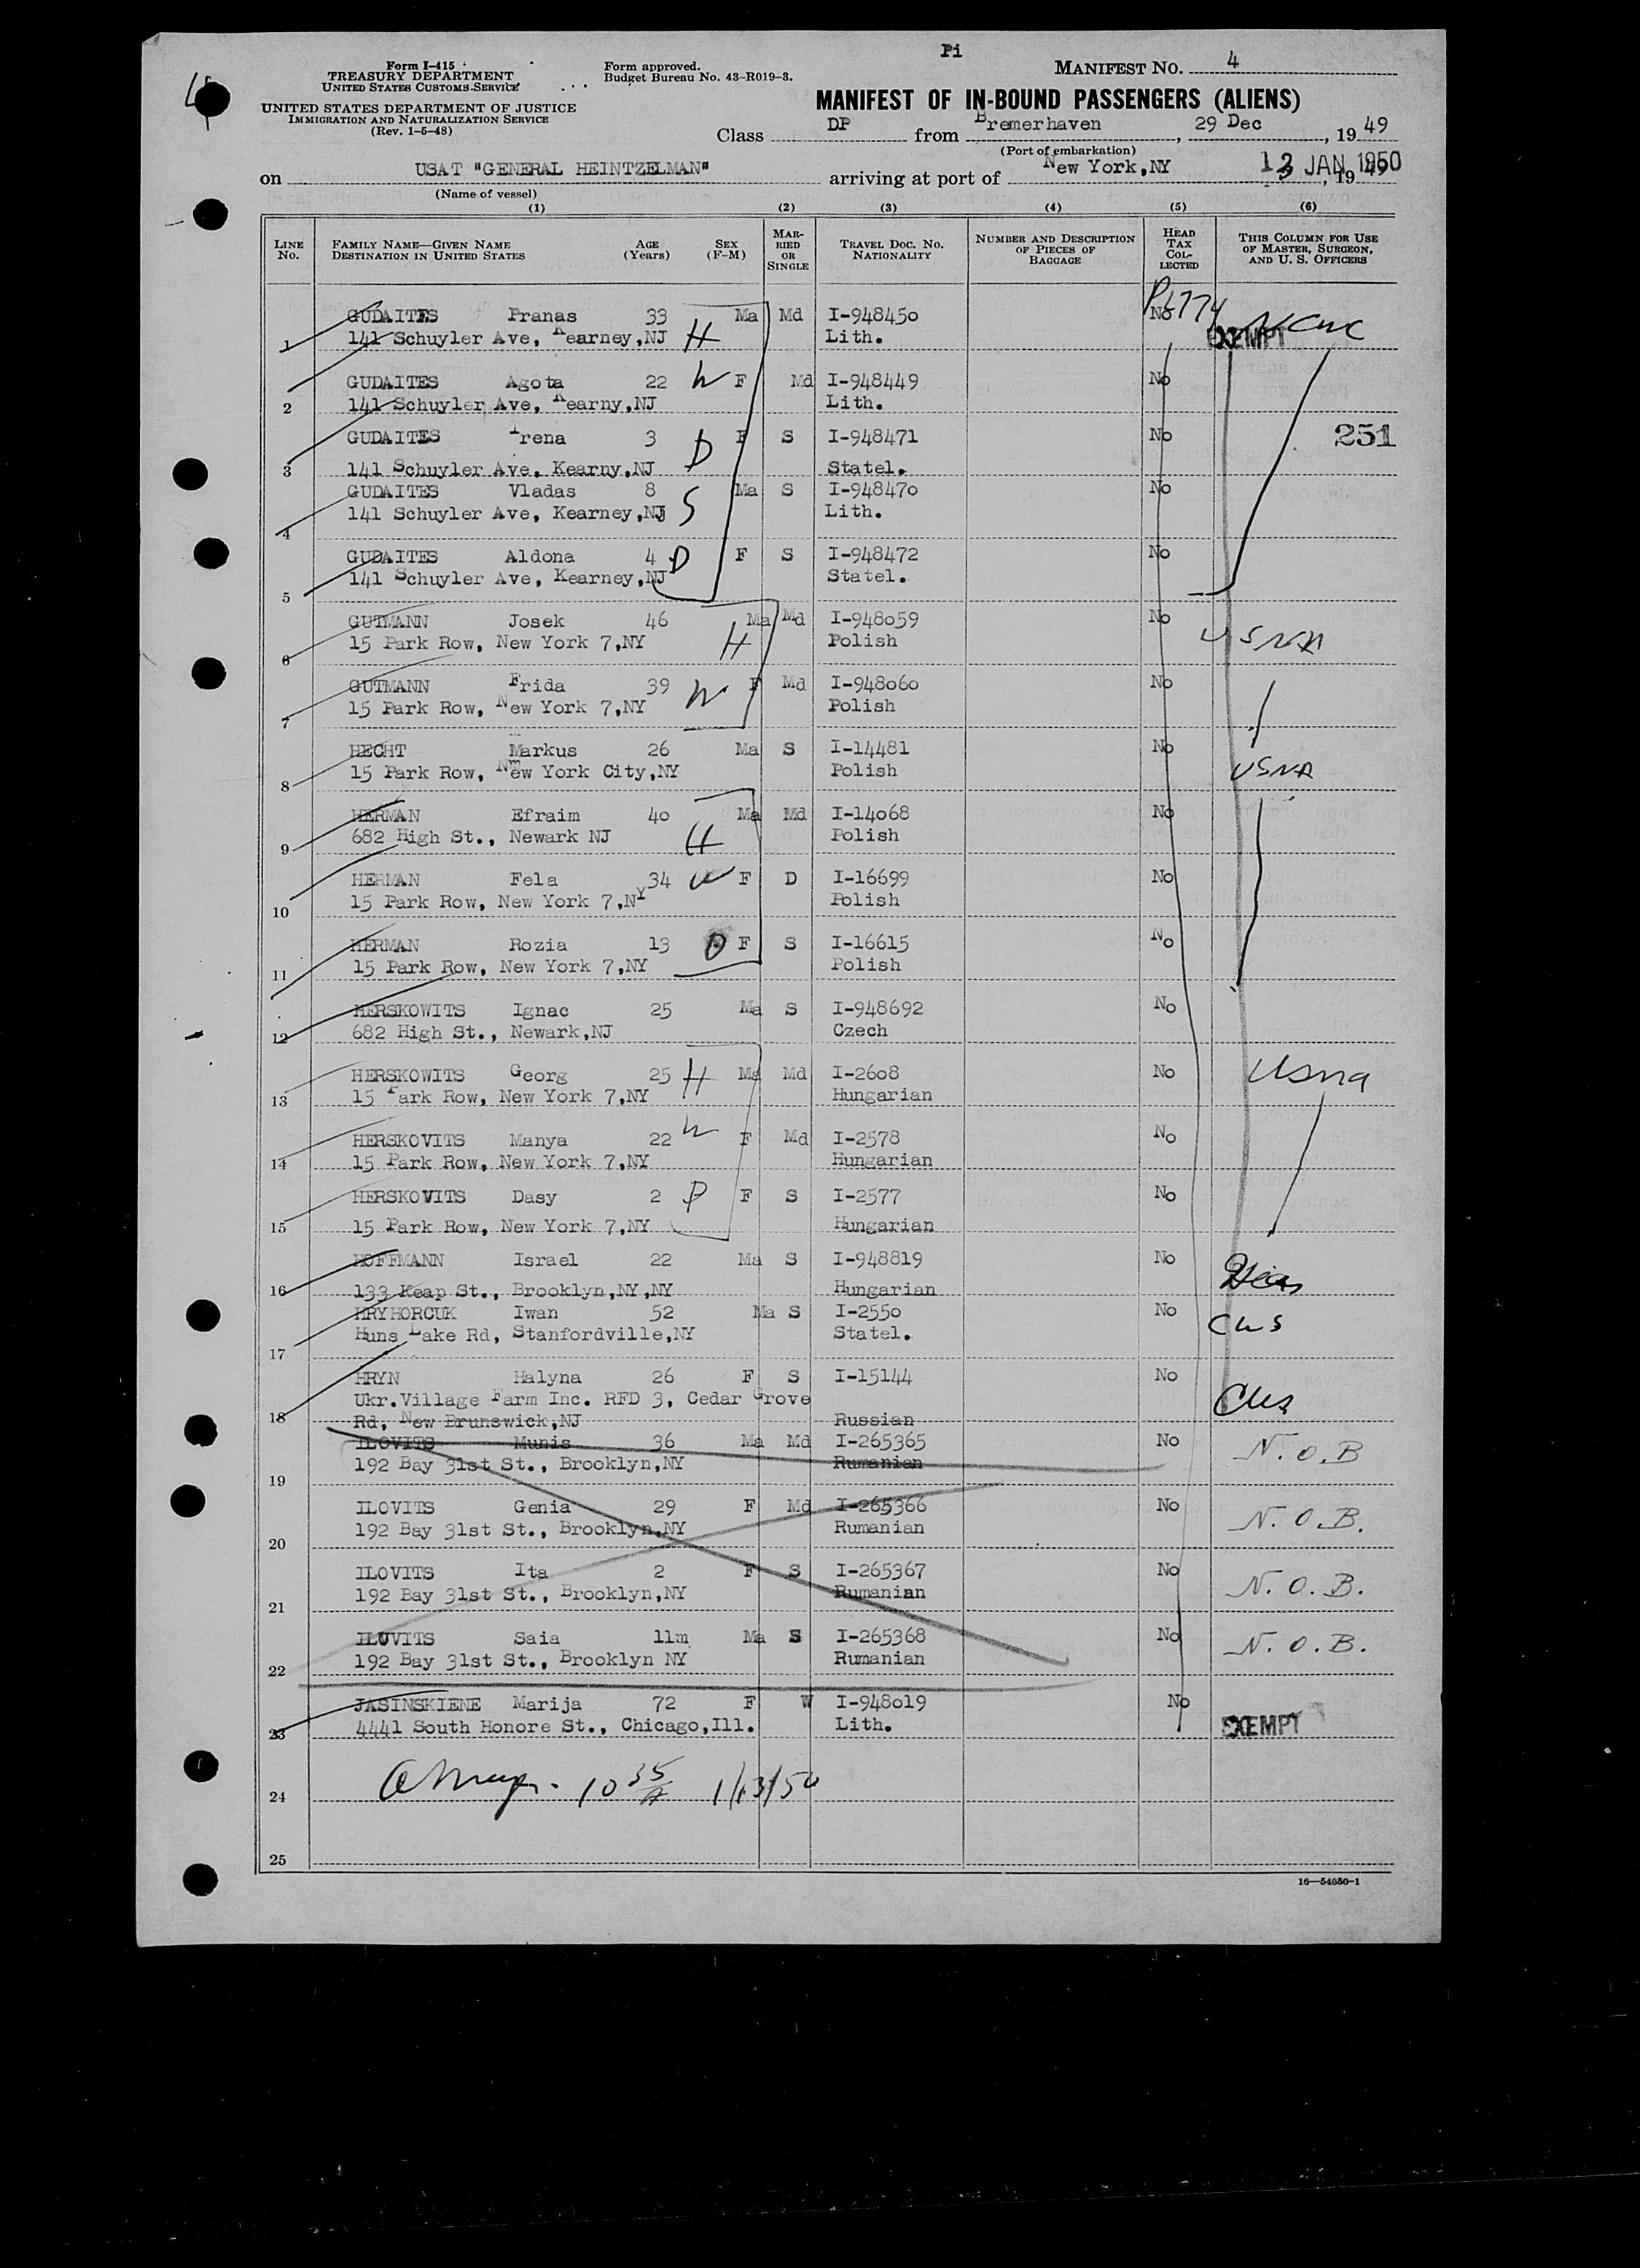 Pi
Form I-415
TREASURY DEPARTMENT
UNITED STATES CUSTOMS SERVICE
UNITED STATES DEPARTMENT OF JUSTICE
IMMIGRATION AND NATURALIZATION SERVICE
(Rev. 1-5-48)
Form approved.
Budget Bureau No. 43-R019-3.
MANIFEST NO. 4
MANIFEST OF IN-BOUND PASSENGERS (ALIENS)
Class DP from Bremerhaven, 29 Dec, 1949
(Port of embarkation)
on USAT "GENERAL HEINTZELMAN" arriving at port of New York,NY 13 JAN 1950, 19
(Name of vessel)
(1) (2) (3) (4) (5) (6)
LINE No. FAMILY NAME—GIVEN NAME DESTINATION IN UNITED STATES AGE (Years) SEX (F-M) MARRIED OR SINGLE TRAVEL DOC. NO. NATIONALITY NUMBER AND DESCRIPTION OF PIECES OF BAGGAGE HEAD TAX COLLECTED THIS COLUMN FOR USE OF MASTER, SURGEON, AND U. S. OFFICERS
GUDAITES Pranas 33 Ma Md I-948450 No NCWC
1 141 Schuyler Ave, Kearney,NJ H Lith. EXEMPT
GUDAITES Agota 22 W F Md I-948449 No
2 141 Schuyler Ave, Kearny,NJ Lith.
GUDAITES Irena 3 D F S I-948471 No 251
3 141 Schuyler Ave, Kearny,NJ Statel.
GUDAITES Vladas 8 Ma S I-948470 No
4 141 Schuyler Ave, Kearney,NJ S Lith.
GUDAITES Aldona 4 D F S I-948472 No
5 141 Schuyler Ave, Kearney,NJ Statel.
GUTMANN Josek 46 Ma Md I-948059 No
6 15 Park Row, New York 7,NY H Polish USNA
GUTMANN Frida 39 W F Md I-948060 No
7 15 Park Row, New York 7,NY Polish
HECHT Markus 26 Ma S I-14481 No
8 15 Park Row, New York City,NY Polish USNA
HERMAN Efraim 40 Ma Md I-14068 No
9 682 High St., Newark NJ H Polish
HERMAN Fela 34 W F D I-16699 No
10 15 Park Row, New York 7,NY Polish
HERMAN Rozia 13 D F S I-16615 No
11 15 Park Row, New York 7,NY Polish
HERSKOWITS Ignac 25 Ma S I-948692 No
12 682 High St., Newark,NJ Czech
HERSKOWITS Georg 25 H Ma Md I-2608 No USNA
13 15 Park Row, New York 7,NY Hungarian
HERSKOVITS Manya 22 W F Md I-2578 No
14 15 Park Row, New York 7,NY Hungarian
HERSKOVITS Dasy 2 D F S I-2577 No
15 15 Park Row, New York 7,NY Hungarian
HOFFMANN Israel 22 Ma S I-948819 No Hias
16 133 Keap St., Brooklyn,NY,NY Hungarian
HRYHORCUK Iwan 52 Ma S I-2550 No CWS
17 Huns Lake Rd, Stanfordville,NY Statel.
HRYN Halyna 26 F S I-15144 No
Ukr.Village Farm Inc. RFD 3, Cedar Grove CWS
18 Rd, New Brunswick,NJ Russian
ILOVITS Munis 36 Ma Md I-265365 No N.O.B
19 192 Bay 31st St., Brooklyn,NY Rumanian
ILOVITS Genia 29 F Md I-265366 No N.O.B.
20 192 Bay 31st St., Brooklyn,NY Rumanian
ILOVITS Ita 2 F S I-265367 No N.O.B.
21 192 Bay 31st St., Brooklyn,NY Rumanian
ILOVITS Saia 11m Ma S I-265368 No N.O.B.
22 192 Bay 31st St., Brooklyn NY Rumanian
JASINSKIENE Marija 72 F W I-948019 No
23 4441 South Honore St., Chicago,Ill. Lith. EXEMPT
24 10 35/A 1/13/50
25
16—54650-1